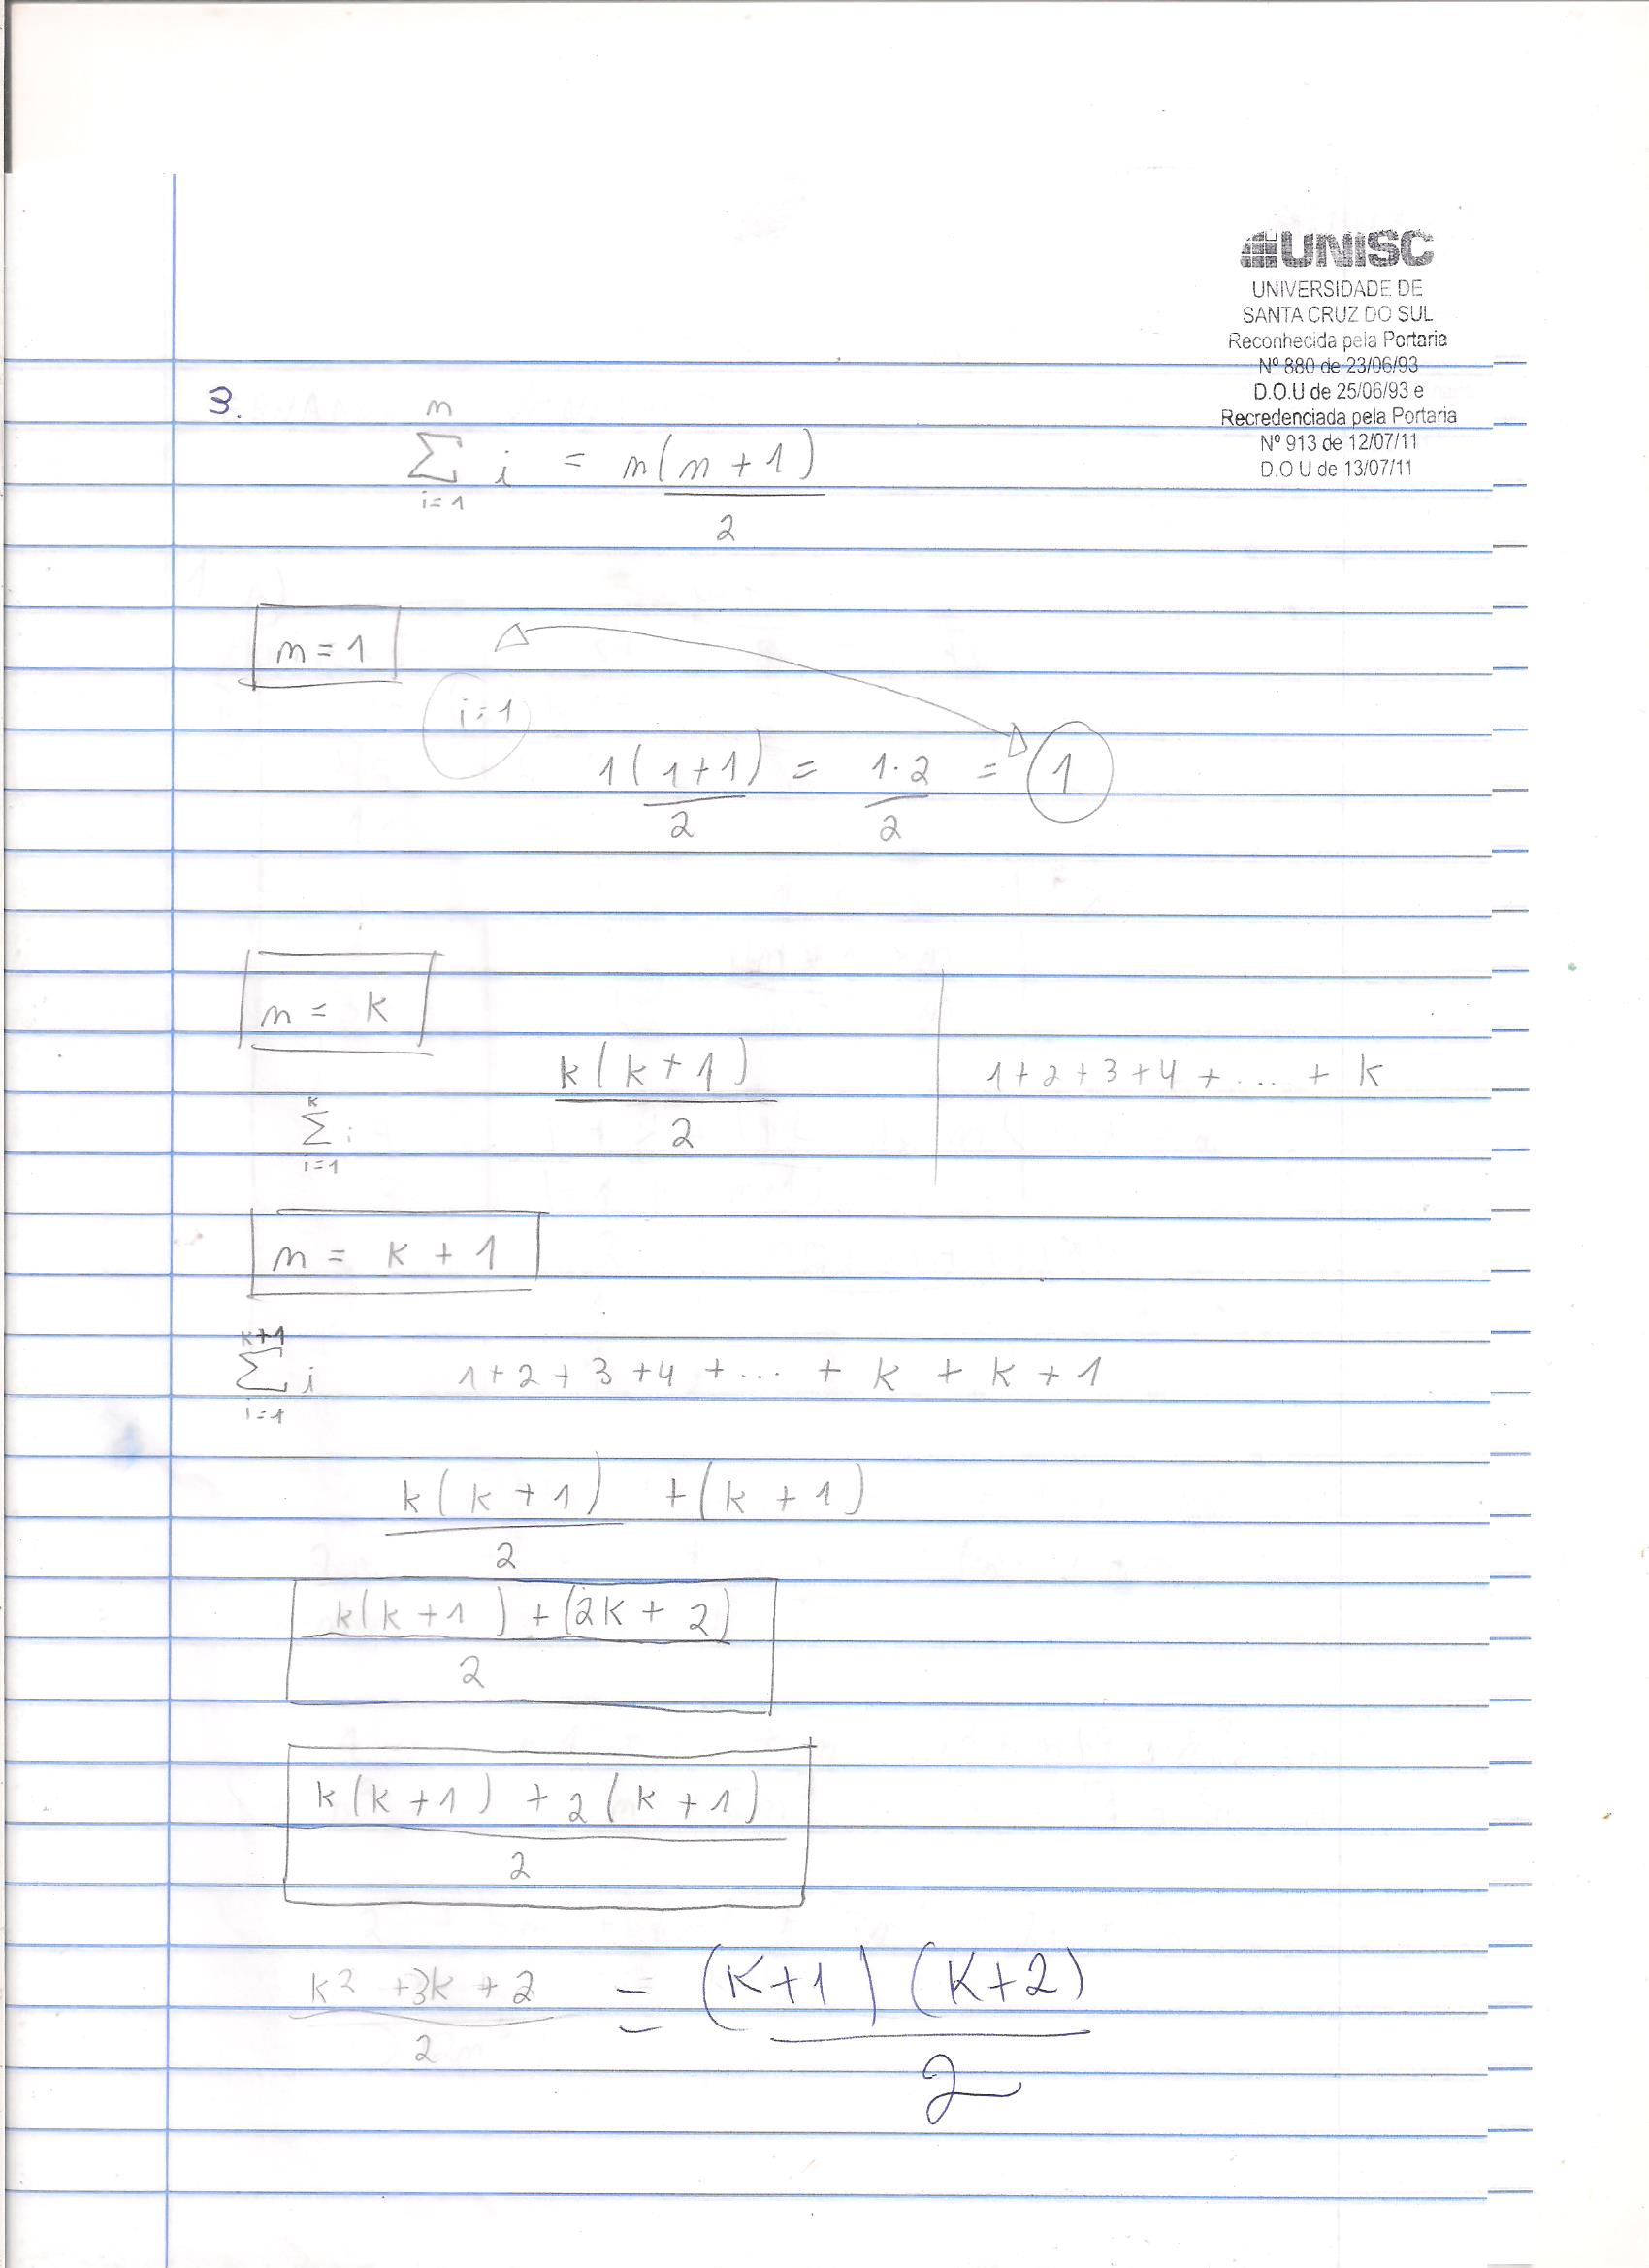 UNISC
UNIVERSIDADE DE
SANTA CRUZ DO SUL
Reconhecida pela Portaria
Nº 880 de 23/06/93
D.O.U de 25/06/93 e
Recredenciada pela Portaria
Nº 913 de 12/07/11
D.O U de 13/07/11
3.
n
∑ i = n(n+1)
i=1 2
n=1
i=1
1(1+1) = 1·2 = 1
2 2
n = k
k(k+1) 1+2+3+4+... + k
k
∑ i 2
i=1
n = k + 1
k+1
∑ i 1+2+3+4+... + k + k + 1
i=1
k(k+1) +(k+1)
2
k(k+1) + (2k+2)
2
k(k+1) + 2(k+1)
2
k2 +3k+2 = (K+1) (K+2)
2 2